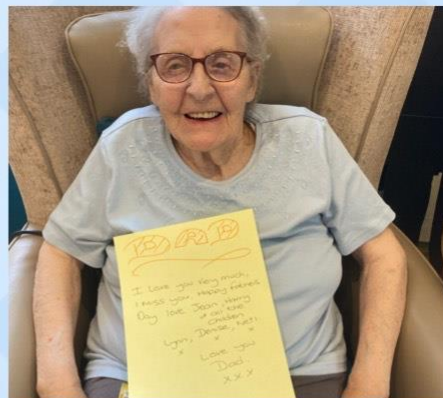 DAD
I Love you Very much,
I miss you. Happy Fathers
Day love Jean, Harry
x all the
Children
Lynn, Denise, Neti
x x x
Love you
Dad.
x x x